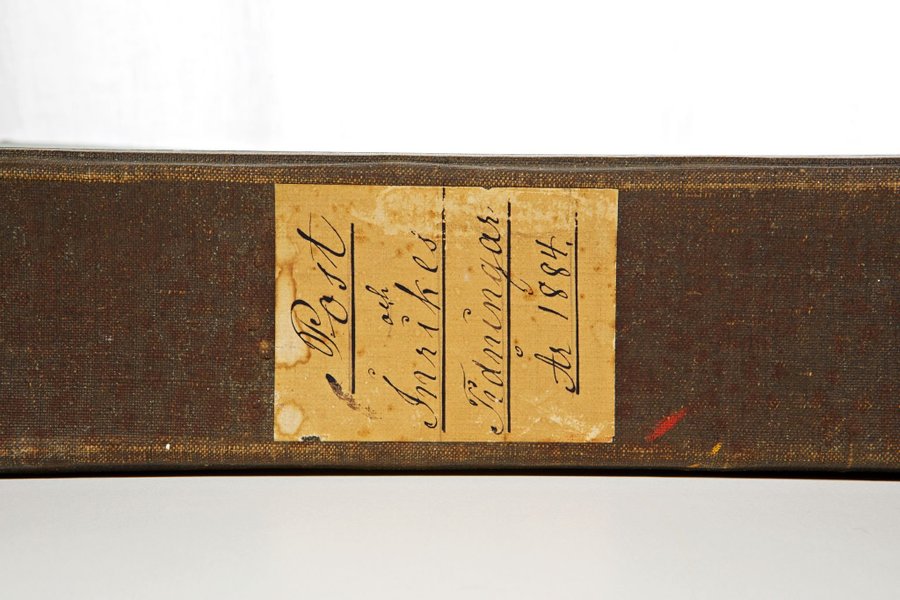 Post
och
Inrikes
Tidningar.
År 1884.